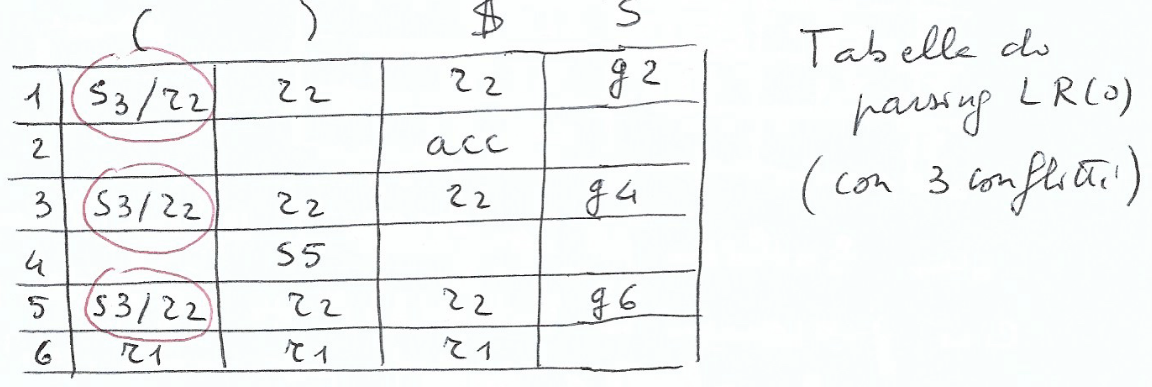 ( ) $ S
1 S3/r2 r2 r2 g2
2 acc
3 S3/r2 r2 r2 g4
4 S5
5 S3/r2 r2 r2 g6
6 r1 r1 r1
Tabella di
parsing LR(0)
(con 3 conflitti)